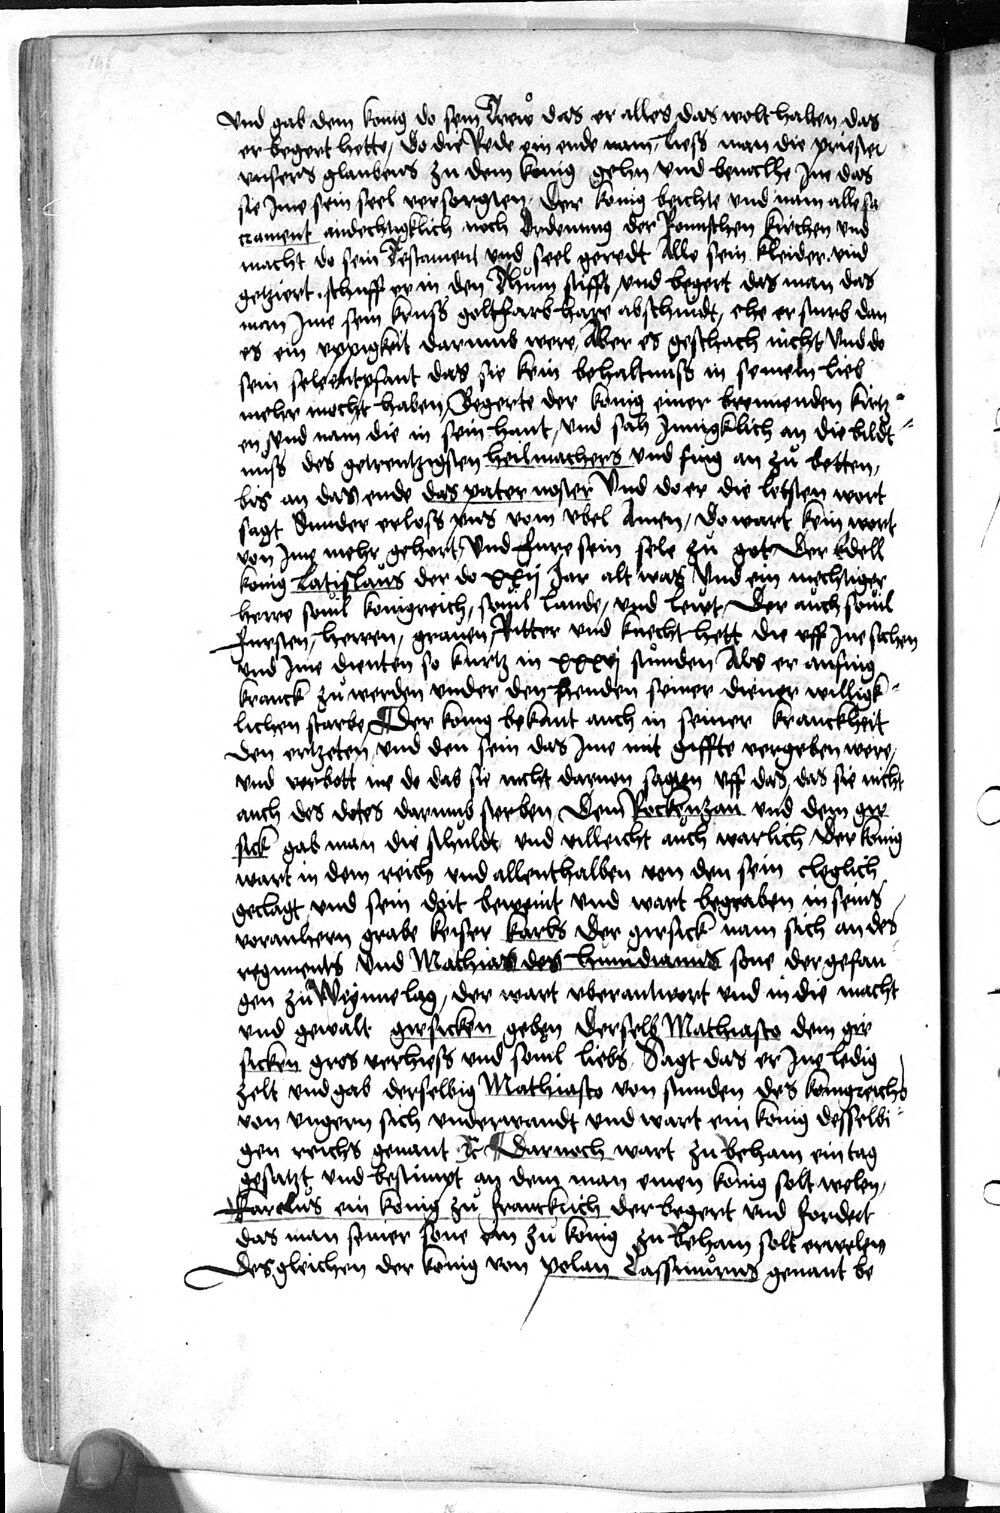 Vnd gab dem konig do sein Trew das er alles das wolt halten das
er begert hette / Do die Rede ein ende nam / liess man die priester
vnsers glaubens zu dem konig gehn vnd beualhe Ime das
sie Ime sein seel versorgten Der konig beichte vnd nam alle sa
crament andechtigklich noch Ordenung der Romischen kirchen vnd
macht do sein Testament vnd seel geredt Alle sein kleider vnd
getziert schuff er in den Thum stifft vnd begert das man das
man Ime sein kruss goltfarb hare abschnidt, ehe er sturb dan
es ein vppigkeit darumb were, Aber es geschach nicht Vnd do
sein sele entpfant das sie kein behaltnuss in seinem lieb
mehr mocht haben, Begerte der konig einer brennenden kirtz
en vnd nam die in sein hant, vnd sah Innigklich an die bildt
nuss des gecreutzigsten heilmachers vnd fing an zu betten,
bis an das ende das pater noster Vnd do er die letsten wort
sagt Sunder erloss vns vom vbel Amen / Do wart kein wort
von Ime mehr gehort Vnd Fure sein sele zu got Der Edell
konig Latislaus der do xxij Jar alt was Vnd ein mechtiger
herre souil konigreich, souil lande, vnd lewt, Der auch souil
Fursten, herren, grauen, Ritter vnd knecht hett die vff Ine sahen
vnd Ime dienten so kurtz in xxxvj stunden Als er anfing
kranck zu werden vnder den henden seiner diener willigk
lichen starbe Der konig bekant auch in seiner kranckheit
den ertzeten vnd den sein das Ime mit giffte vergeben were,
vnd verbott ine do das sie nicht daruon sagten vff das, das sie nicht
auch des dotes darumb sterben Dem Rockenzan vnd dem gir
sick gab man die schuldt vnd villeicht auch warlich Der konig
wart in dem reich vnd allenthalben von den sein cleglich
geclagt vnd sein doit beweint vnd wart begraben in seins
voranhern grabe keiser karls Der girsick nam sich an des
regiments Vnd Mathias des humdianus sone der gefan
gen zu Weynne lag, der wart vberantwort vnd in die macht
vnd gewalt girsicken geben Derselb Mathiasco dem gir
sicken gros verhiess vnd souil liebs Sagt das er Ine ledig
zelt vnd gab derselbig Mathiasco von stunden des konigreichs
von vngern sich vnderwandt vnd wart ein konig desselbi
gen reichs genant Darnoch wart zu beham ein tag
gesatzt vnd bestimpt an dem man einen konig solt welen,
Karolus ein konig zu franckrich der begert vnd fordert
das man seiner sone ein zu konig zu Beham solt erwelen
Desgleichen der konig von polan Cassimirus genant be